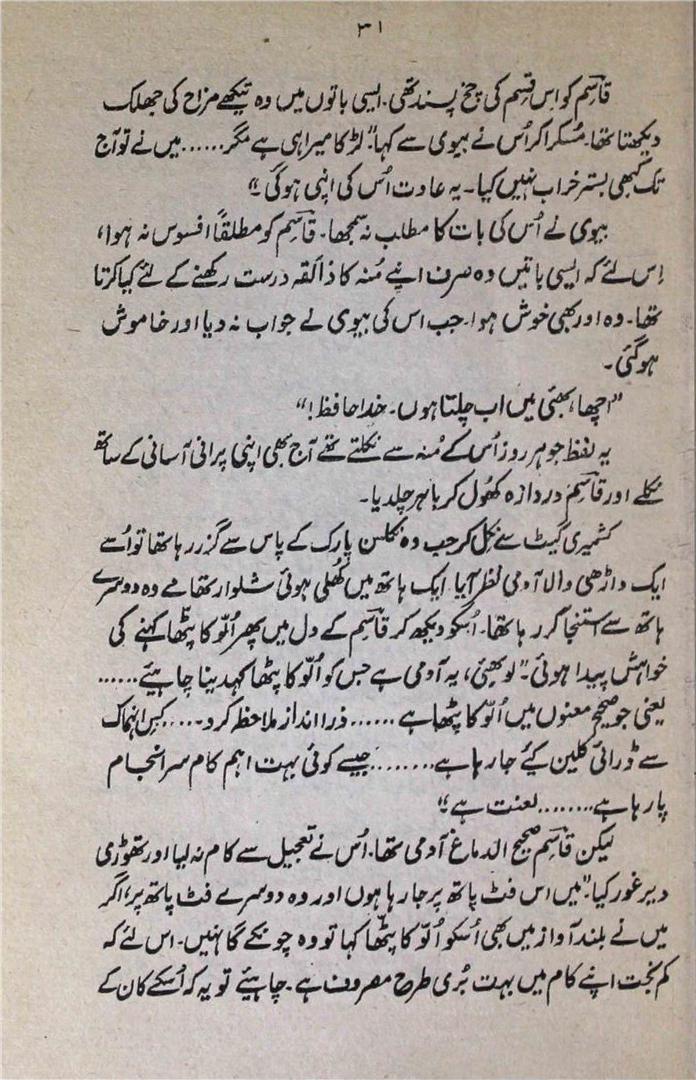 ۳۱
قاسم کو اس قسم کی چخ پسند تھی۔ ایسی باتوں میں وہ تیکھے مزاح کی جھلک
دیکھتا تھا۔ مُسکرا کر اُس نے بیوی سے کہا: "لڑکا میرا ہی ہے مگر...... میں نے تو آج
تک کبھی بستر خراب نہیں کیا۔ یہ عادت اُس کی اپنی ہوگی۔"
بیوی نے اُس کی بات کا مطلب نہ سمجھا۔ قاسم کو مطلقاً افسوس نہ ہوا،
اِس لئے کہ ایسی باتیں وہ صرف اپنے مُنہ کا ذائقہ درست رکھنے کے لئے کیا کرتا
تھا۔ وہ اور بھی خوش ہوا۔ جب اس کی بیوی نے جواب نہ دیا اور خاموش
ہوگئی۔
"اچھا، بھئی میں اب چلتا ہوں۔ خدا حافظ!"
یہ لفظ جو ہر روز اُس کے مُنہ سے نکلتے تھے آج بھی اپنی پرانی آسانی کے ساتھ
نکلے اور قاسم دروازہ کھول کر باہر چلدیا۔
کشمیری گیٹ سے نکل کر جب وہ نکلسن پارک کے پاس سے گزر رہا تھا تو اُسے
ایک داڑھی والا آدمی نظر آیا ایک ہاتھ میں کُھلی ہوئی شلوار تھامے وہ دوسرے
ہاتھ سے استنجا کر رہا تھا۔ اسکو دیکھ کر قاسم کے دل میں پھر اُلّو کا پٹھا کہنے کی
خواہش پیدا ہوئی۔ "لو بھئی، یہ آدمی ہے جس کو اُلّو کا پٹھا کہدینا چاہیئے......
یعنی جو صحیح معنوں میں اُلّو کا پٹھا ہے...... ذرا انداز ملاحظہ کرو..... کس انہماک
سے ڈرائی کلین کیے جا رہا ہے........ جیسے کوئی بہت اہم کام سرانجام
پا رہا ہے........ لعنت ہے"
لیکن قاسم صحیح الدماغ آدمی تھا۔ اُس نے تعجیل سے کام نہ لیا اور تھوڑی
دیر غور کیا۔ "میں اس فٹ پاتھ پر جا رہا ہوں اور وہ دوسرے فٹ پاتھ پر، اگر
میں نے بلند آواز میں بھی اُسکو اُلّو کا پٹھا کہا تو وہ چونکے گا نہیں۔ اس لئے کہ
کم بخت اپنے کام میں بہت بُری طرح مصروف ہے۔ چاہیئے تو یہ کہ اُسکے کان کے